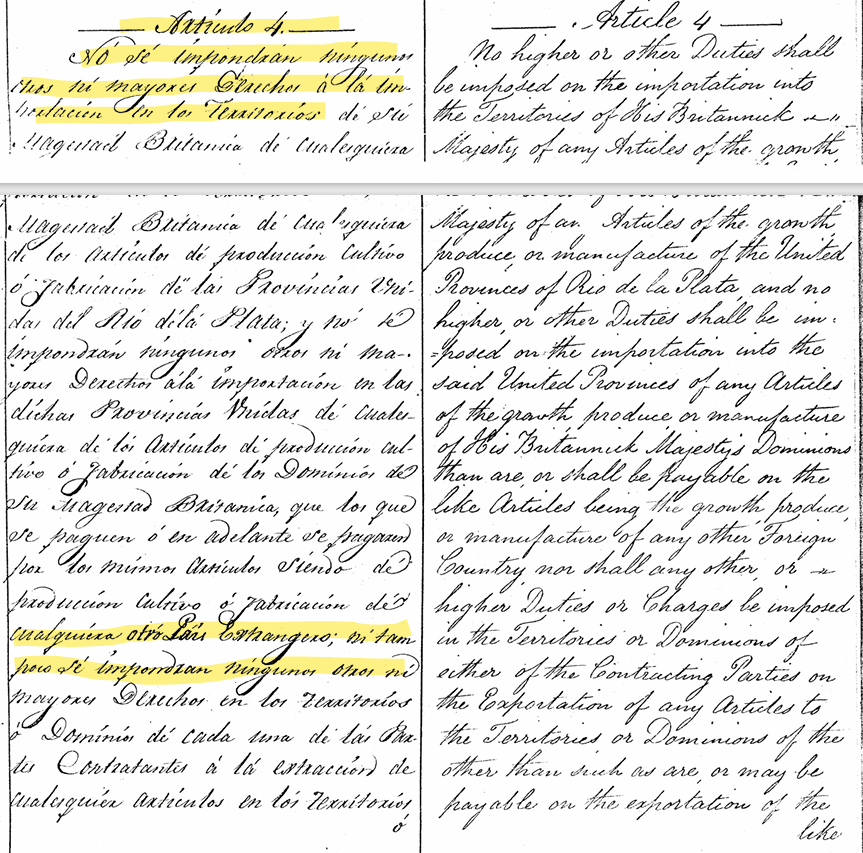 Artículo 4.
No sé impondrán ningunos
otros ni mayores Derechos à la Im-
portación en los Territorios de Su
Magestad Britanica de cualesquiera
Magestad Britanica de cualesquiera
de los Articulos de producción cultivo
ó fabricación de las Provincias Uni-
das del Rio dela Plata; y no se
impondrán ningunos otros ni ma-
yores Derechos álá importación en las
dichas Provincias Unidas de cuales-
quiera de lós Artículos de producción cul-
tivo ó fabricación de los Dominios de
Su Magestad Britanica, que los que
se paguen ó en adelante se pagaren
por los mismos Artículos siendo de
producción cultivo ó fabricación de
cualquiera otro País Extrangero; ni tam
poco sé impondran ningunos otros ni
mayores Derechos en los Territorios
ó Dominios de cada una de lás Par-
tes Contratantes á lá extracción de
cualesquier artículos en lós Territorios
ó
Article 4
No higher or other Duties shall
be imposed on the importation into
the Territories of His Britannick
Majesty of any Articles of the growth,
Majesty of an Articles of the growth
produce, or manufacture of the United
Provinces of Rio de la Plata, and no
higher, or other Duties shall be im-
=posed on the importation into the
said United Provinces of any Articles
of the growth, produce or manufacture
of His Britannick Majesty's Dominions
than are, or shall be payable on the
like Articles being the growth produce,
or manufacture of any other Foreign
Country, nor shall any other, or
higher Duties or Charges be imposed
in the Territories or Dominions of
either of the Contracting Parties on
the Exportation of any Articles to
the Territories or Dominions of the
other than such as are, or may be
payable on the exportation of the
like